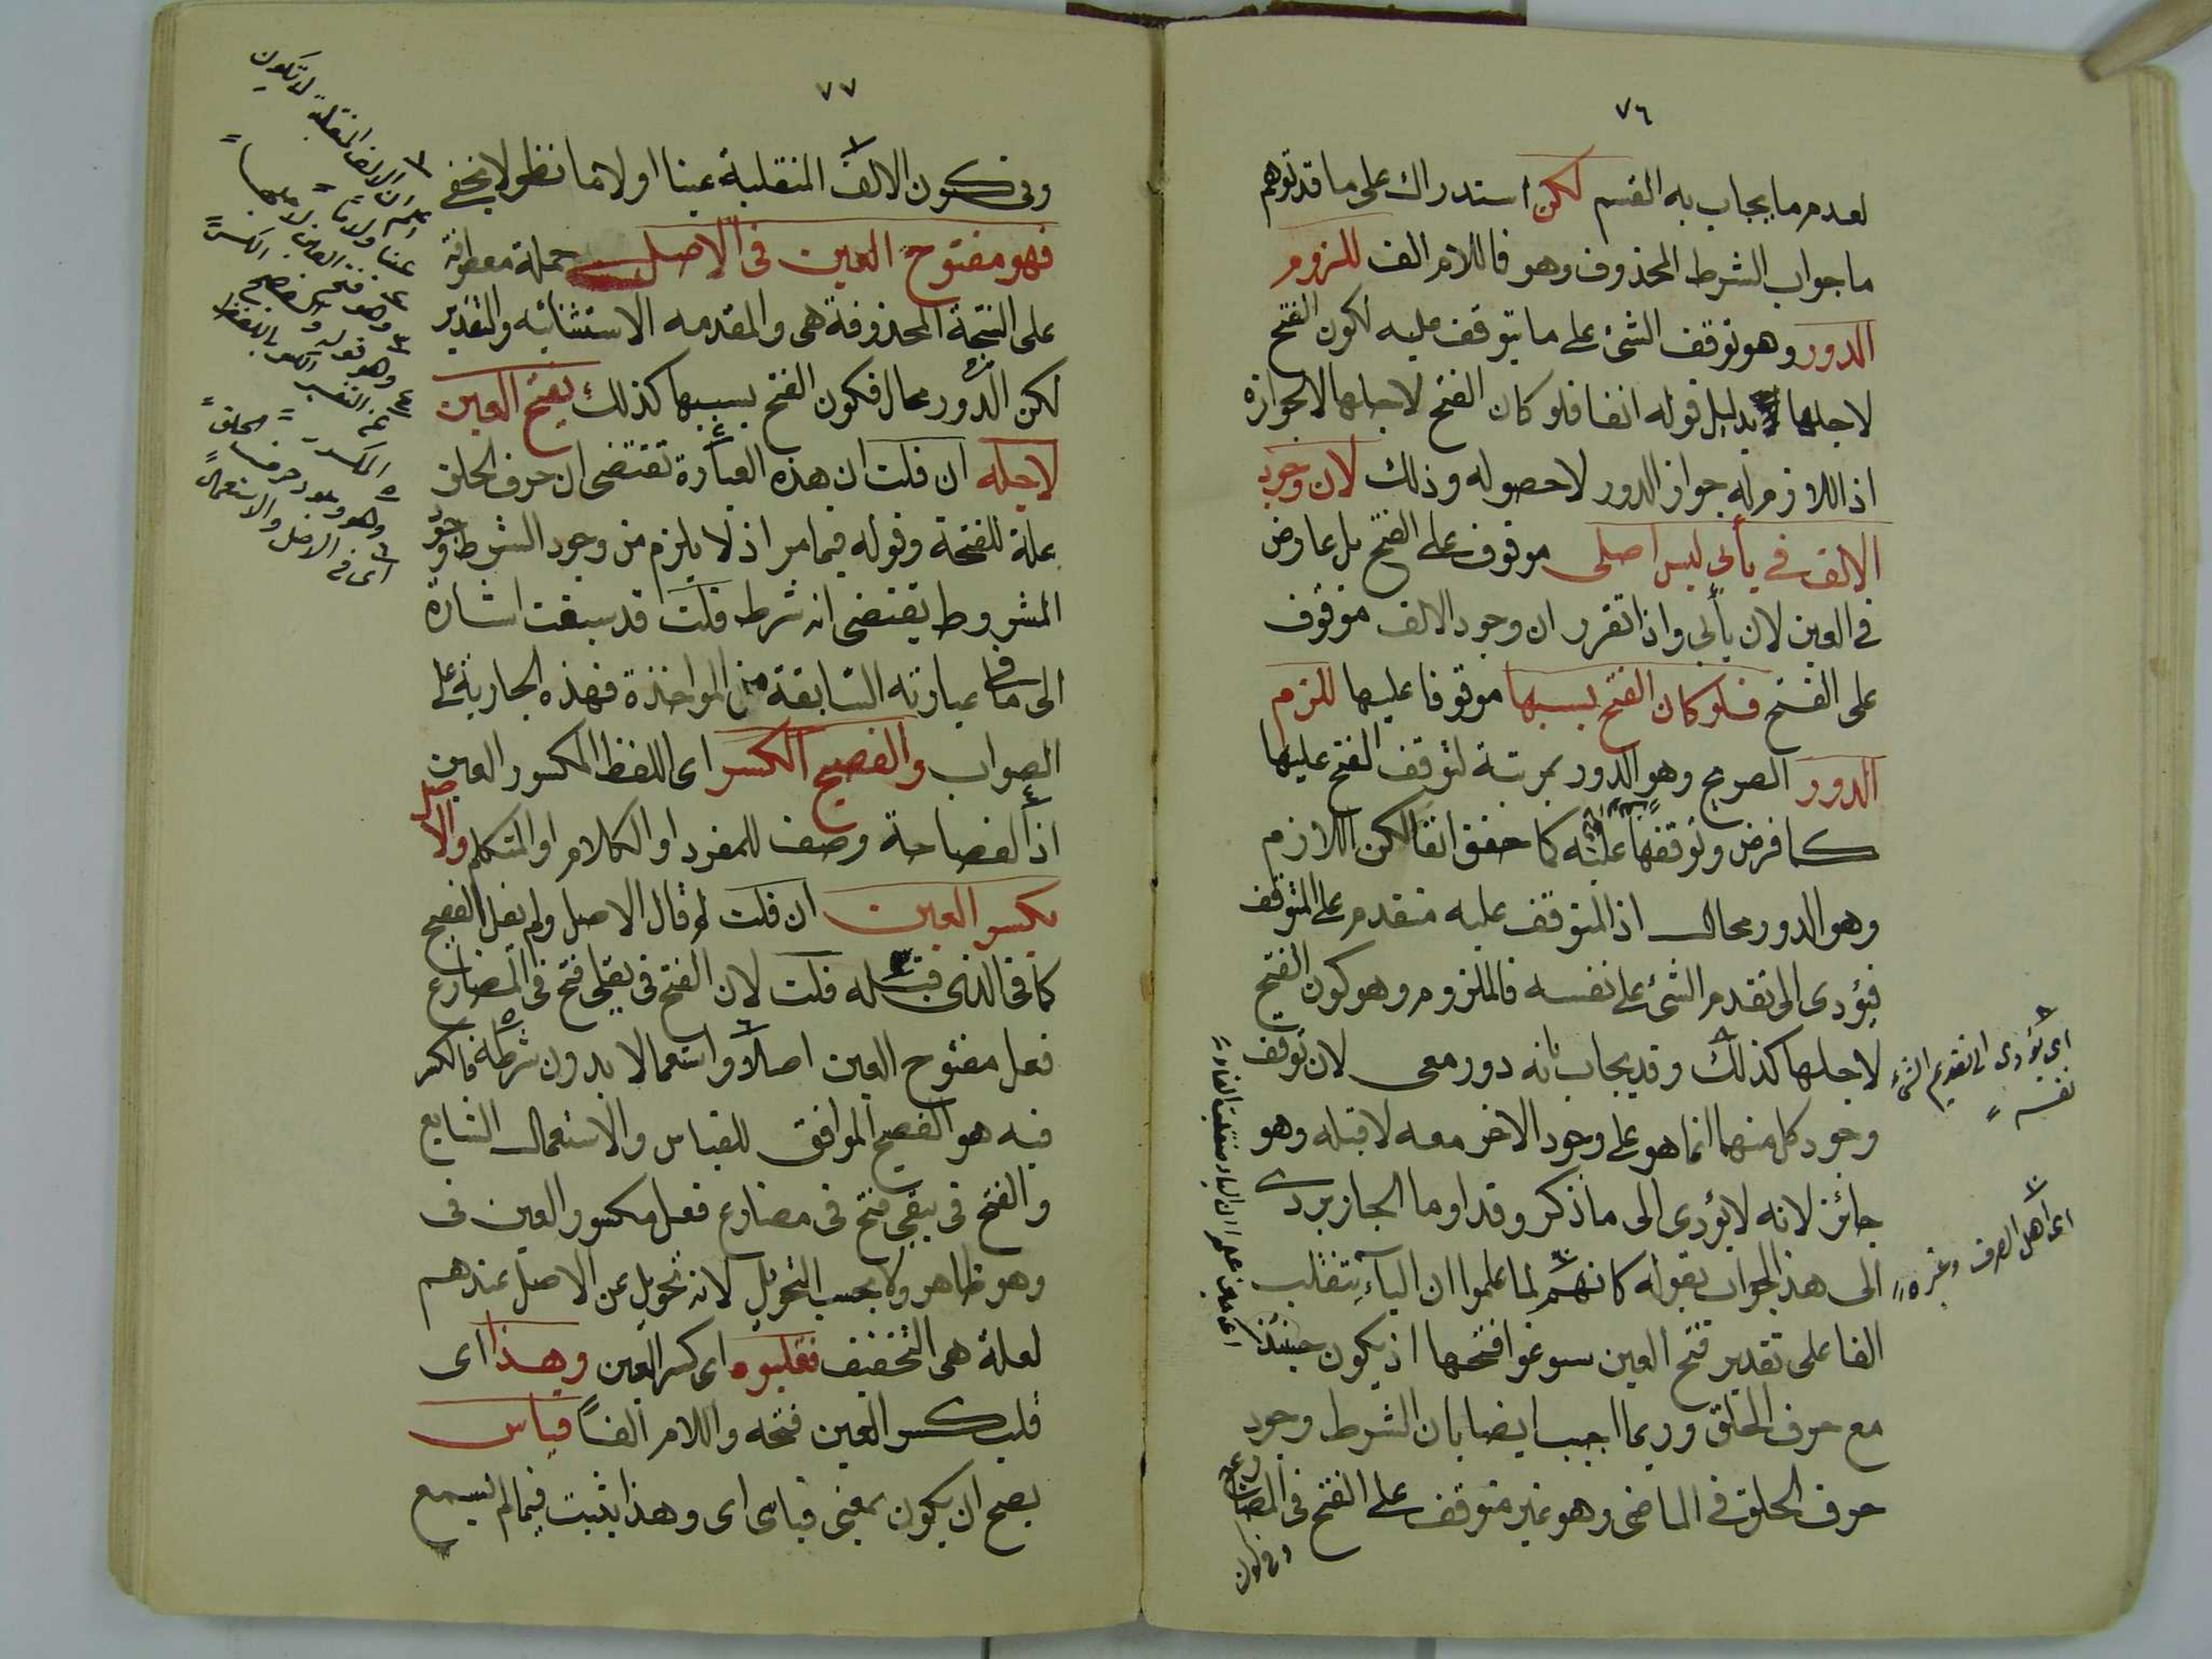 ٧٦
لعدم ما يجاب به القسم لكن استدراك على ما قد توهم
ما جواب الشرط المحذوف وهو فاللام الف للزوم
الدور وهو توقف الشئ على ما يتوقف عليه لكون الفتح
لاجلها بدليل قوله انفا فلو كان الفتح لاجلها لا لجوازه
اذ اللازم له جواز الدور لا حصوله وذلك لان وجود
الالف في يأبى ليس اصلى موقوف على الفتح بل عارض
في العين لان يأبى واذا تقرر ان وجود الالف موقوف
على الفتح فلو كان الفتح بسببها موقوفا عليها للزم
الدور الصريح وهو الدور بمرتبة لتوقف الفتح عليها
كما فرض وتوقفها عليه كما حقق انفا لكن اللازم
وهو الدور محال اذ المتوقف عليه متقدم على المتوقف
فيؤدى الى تقدم الشئ على نفسه فالملزوم وهو كون الفتح
لاجلها كذلك وقد يجاب بانه دور معى لان توقف
وجود كل منهما انما هو على وجود الاخر معه لا قبله وهو
جائز لانه لا يؤدى الى ما ذكر وقد اوما الجاربردى
الى هذا الجواب بقوله كانهم لما علموا ان الياء تنقلب
الفا على تقدير فتح العين سوغوا فتحها اذ يكون حينئذ
مع حرف الحلق وربما اجيب ايضا بان الشرط وجود
حرف الحلق في الماضى وهو غير متوقف على الفتح فى المضارع
وفى كون
اى يؤدى الى تقديم الشئ
نفسه
اى اهل الصرف وغيره
٧٧
وفى كون الالف المنقلبة عينا او لاما نظر لا يخفى
فهو مفتوح العين فى الاصل جملة معطوفة
على النتيجة المحذوفة هى والمقدمه الاستثنائيه والتقدير
لكن الدور محال فكون الفتح بسببها كذلك بفتح العين
لاجله ان قلت ان هذه العبارة تقتضى ان حرف الحلق
علة للفتحة وقوله فيما مر اذ لا يلزم من وجود الشرط وجود
المشروط يقتضى انه شرط قلت قد سبقت اشارة
الى ما فى عبارته السابقة من المواخذة فهذه الجارية على
الصواب والفصيح الكسر اى اللفظ المكسور العين
اذ الفصاحة وصف للمفرد او الكلام او المتكلم والاصل
بكسر العين ان قلت لم قال الاصل ولم يقل الفصيح
كما فى الذى قبله قلت لان الفتح فى يقلى فتح فى المضارع
فعل مفتوح العين اصلا واستعمالا بدون شرطه فالكسر
فيه هو الفصيح الموافق للقياس والاستعمال الشايع
والفتح فى يبقى فتح فى مضارع فعل مكسور العين فى
وهو ظاهر ولا بحسب التحويل لانه تحويل عن الاصل عندهم
لعلة هى التخفيف فقلبوه اى كسر العين وهذا اى
قلب كسر العين فتحه واللام الفاً قياس
يصح ان يكون بمعنى قياسى اى وهذا يثبت فيما لم يسمع